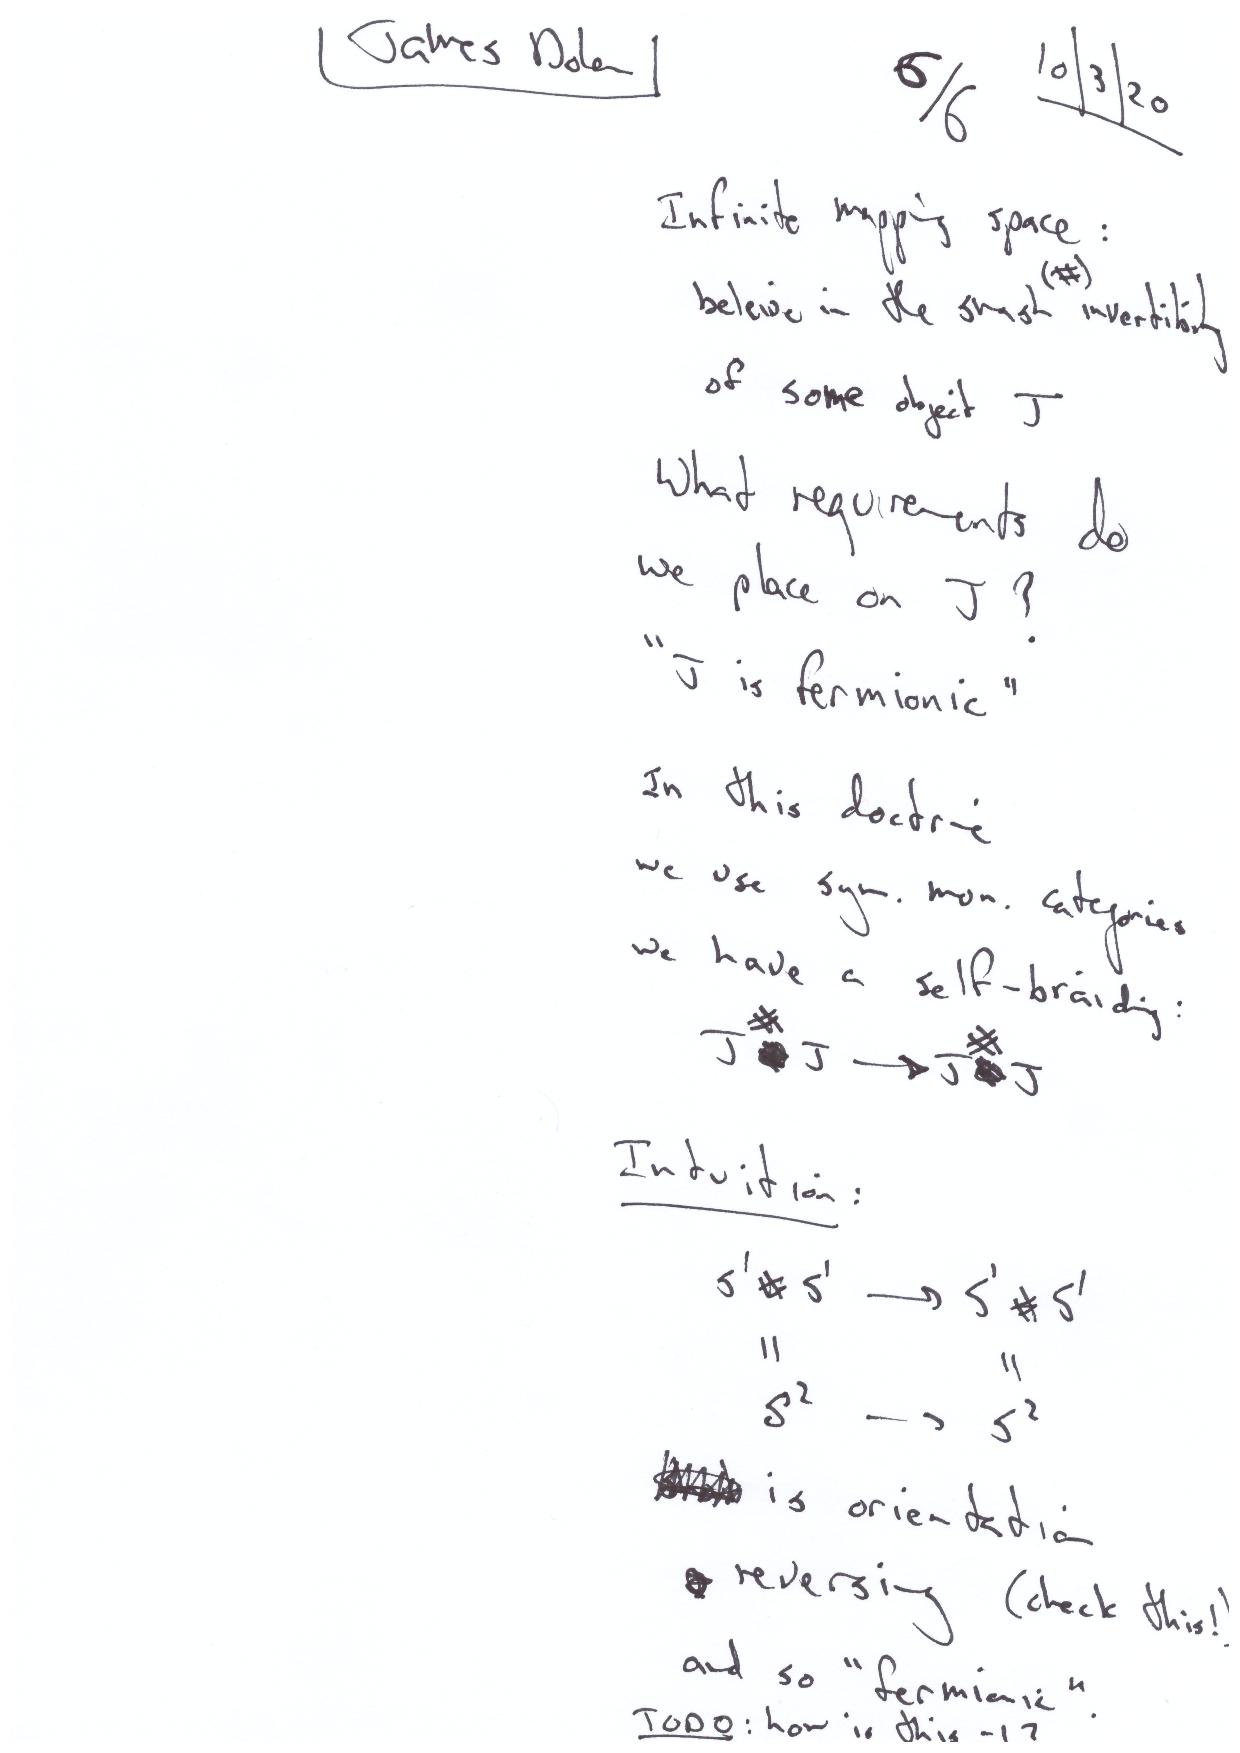 James Dolan
6/6 10/3/20
Infinite mapping space:
beleive in the smash (#) invertibility
of some object J
What requirements do
we place on J?
"J is fermionic"
In this doctrine
we use sym. mon. categories
we have a self-braiding:
J # J → J # J
Intuition:
S¹ # S¹ → S¹ # S¹
= =
S² → S²
is orientation
reversing (check this!)
and so "fermionic".
TODO: how is this -1?